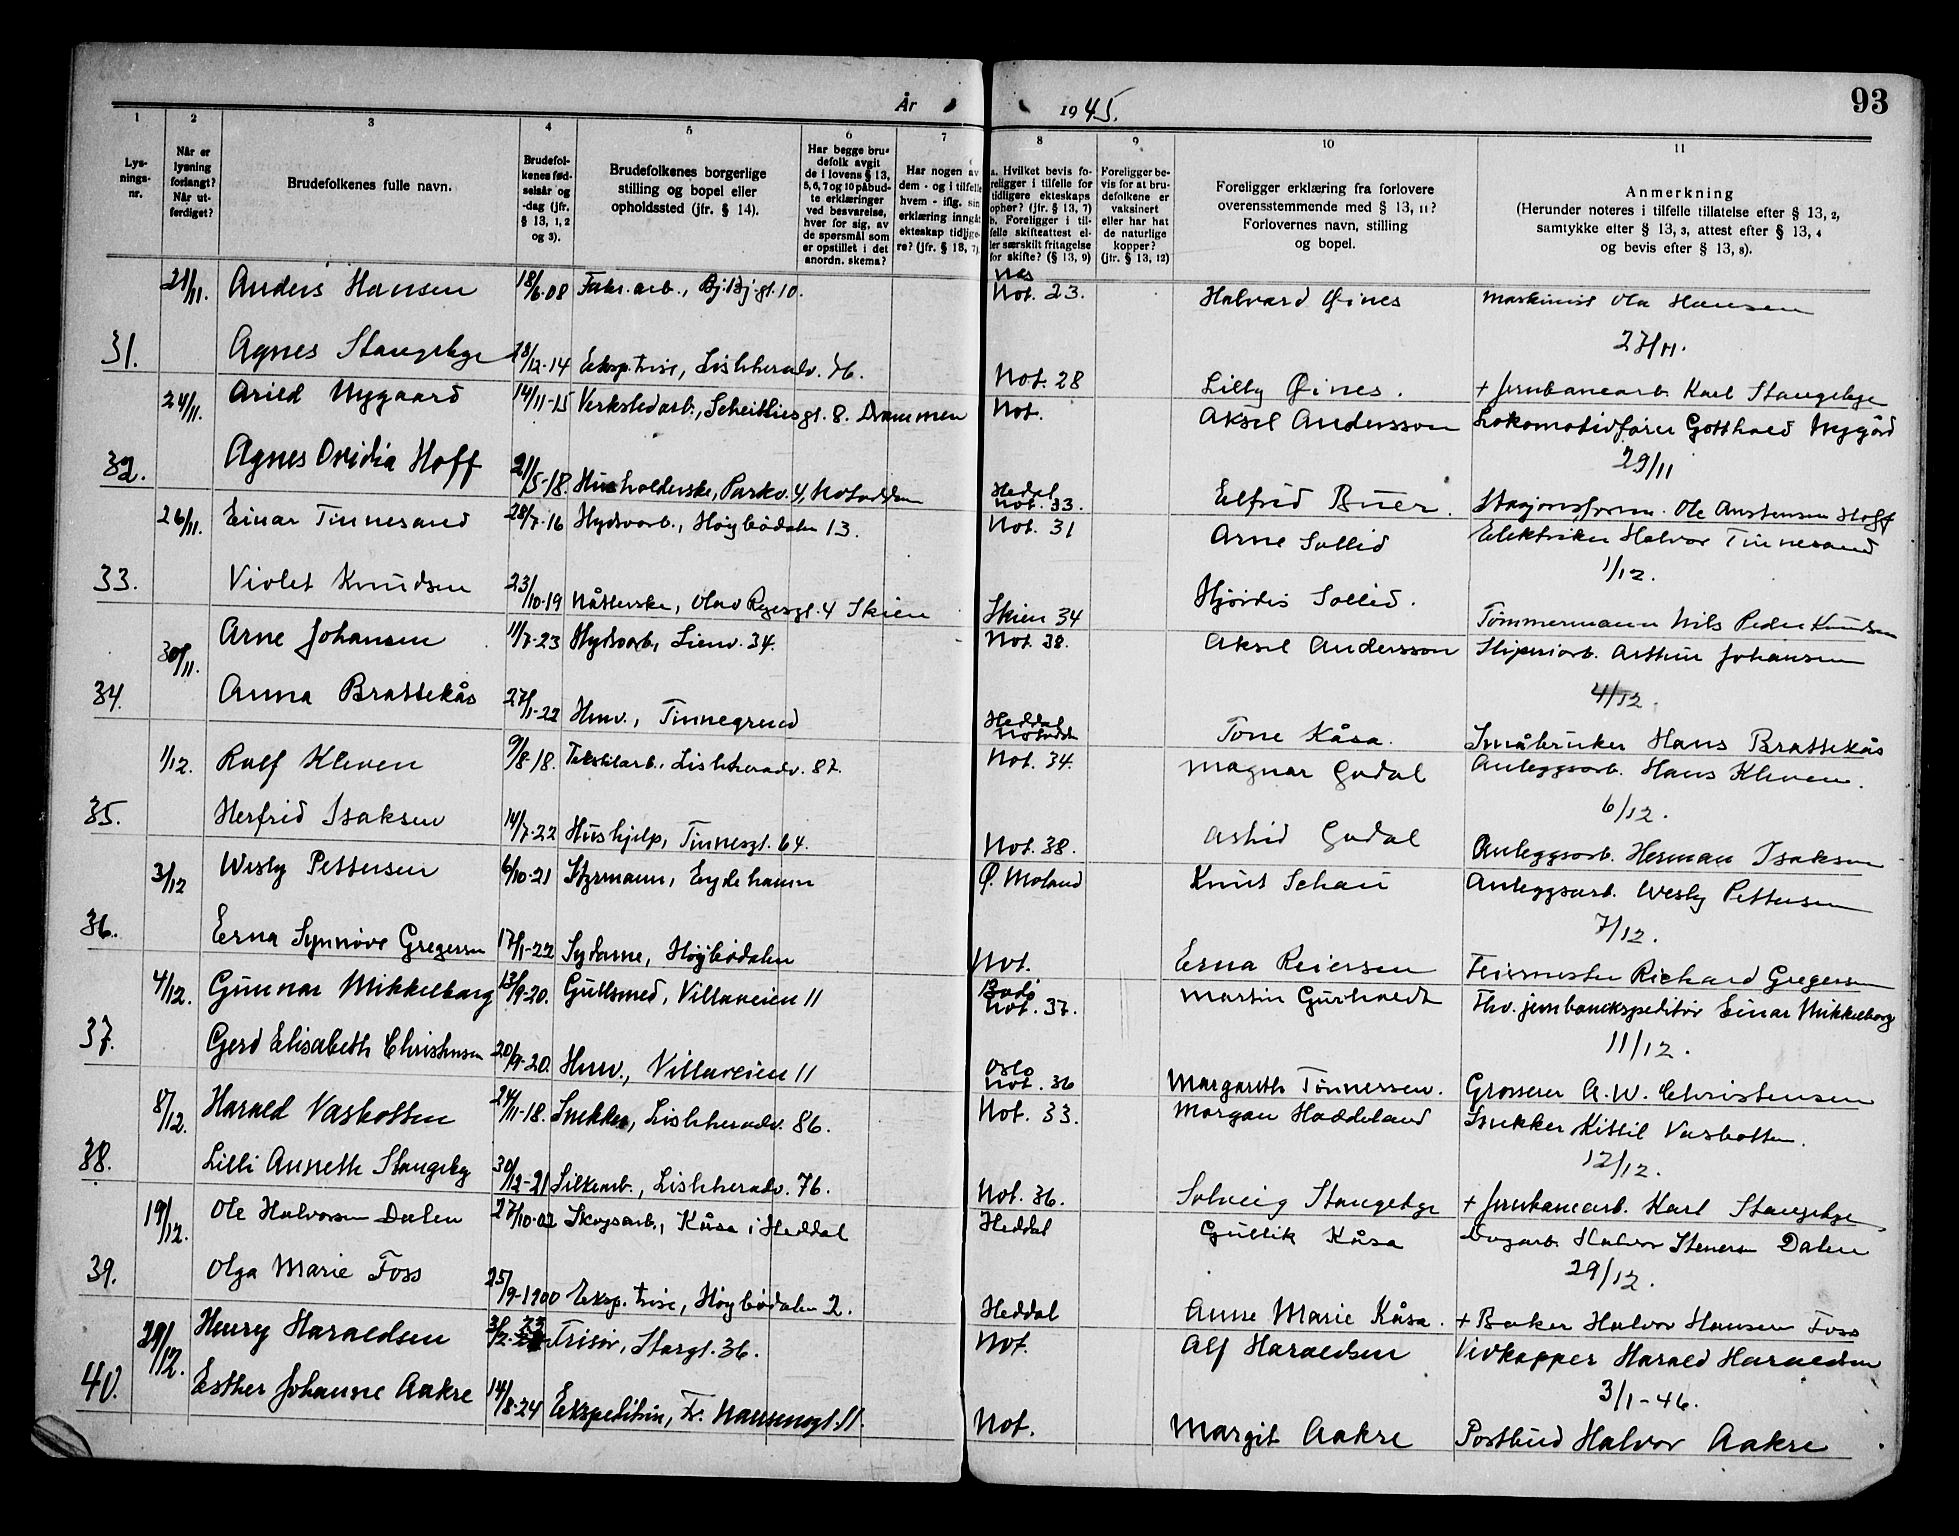 93
År 1945.
1
2
3
4
5
6
7
8
9
10
11
Lysningsnr.
Når er lysning forlangt? Når utferdiget?
Brudefolkenes fulle navn.
Brudefolkenes fødselsår og -dag (jfr. § 13, 1, 2 og 3).
Brudefolkenes borgerlige stilling og bopel eller opholdssted (jfr. § 14).
Har begge brudefolk avgit de i lovens § 13, 5, 6, 7 og 10 påbudte erklæringer ved besvarelse, hver for sig, av de spørsmål som er opstillet i det anordn. skema?
Har nogen av dem - og i tilfelle hvem - iflg. sin erklæring inngått ekteskap tidligere? (jfr. § 13, 7).
a. Hvilket bevis foreligger i tilfelle for tidligere ekteskaps ophør? (jfr. § 13, 7) b. Foreligger i tilfelle skifteattest eller særskilt fritagelse for skifte? (§ 13, 9)
Foreligger bevis for at brudefolkene er vaksinert eller har hat de naturlige kopper? (jfr. § 13, 12)
Foreligger erklæring fra forlovere overensstemmende med § 13, 11? Forlovernes navn, stilling og bopel.
Anmerkning (Herunder noteres i tilfelle tillatelse efter § 13, 2, samtykke efter § 13, 3, attest efter § 13, 4 og bevis efter § 13, 8).
21/11. Anders Hansen 18/6-08 Fabr.arb., Bj.Bj.gt. 10. Nes Not. 23. Halvard Øines Maskinist Ola Hansen
27/11.
31. Agnes Stangebye 18/12-14 Eksp.trise, Lislheradv. 76. Not. 28 Lilly Øines. + Jernbanearb. Karl Stangebye
24/11. Arild Nygaard 14/11-15 Verkstedarb., Scheitliesgt. 8. Drammen Not. Aksel Andersson Lokomotivfører Gotthold Nygård
29/11
32. Agnes Ovidia Hoff 21/5-18. Husholderske, Parkv. 4, Notodden Hedal Not. 33. Elfrid Buer. Stasjonsform. Ole Austensen Hoff
26/11. Einar Tinnesand 28/7-16 Hydroarb., Høybødalen 13. Not. 31 Arne Sollid Elektriker Halvor Tinnesand
1/12.
33. Violet Knudsen 23/10-19 Nåtlerske, Olav Ryesgt. 4 Skien Skien 34 Hjørdis Sollid. Tømmermann Nils Peder Knudsen
30/11. Arne Johansen 11/7-23 Hydroarb, Lienv. 34. Not. 38. Aksel Andersson Sliperiarb. Arthur Johansen
4/12.
34. Anna Brattekås 27/1-22 Hmv., Tinnegrend Heddal Notodden Tone Kåsa. Småbruker Hans Brattekås
1/12. Ralf Kleven 9/8-18. Tekstilarb., Lislheradv. 87. Not. 34. Magnar Godal Anleggsarb. Hans Kleven.
6/12.
35. Herfrid Isaksen 14/7-22 Hushjelp, Tinnesgt. 64. Not. 38. Astrid Godal Anleggsarb. Herman Isaksen
3/12 Wesly Pettersen 6/10-21 Styrmann, Eydehavn Ø. Moland Knut Schau Anleggsarb. Wesly Pettersen
7/12.
36. Erna Synnøve Gregersen 17/1-22 Sydame, Høybødalen Not. Erna Reiersen Feiermester Richard Gregersen
4/12. Gunnar Mikkelborg 13/9-20. Gullsmed, Villaveien 11 Bodø Not. 37. Martin Gurholdt Fhv. jernbanekspeditør Einar Mikkelborg
11/12.
37. Gerd Elisabeth Christensen 20/9-20. Hmv., Villaveien 11 Oslo Not. 36 Margareth Tønnessen. Grosserer A. W. Christensen
8/12. Harald Vasbotten 24/11-18. Snekker, Lislheradv. 86. Not. 33. Morgan Haddeland Snekker Kittil Vasbotten.
12/12.
38. Lilli Anneth Stangeby 30/12-21 Silkearb., Lislheradv. 76. Not. 36. Solveig Stangebye + Jernbanearb. Karl Stangebye
19/12. Ole Halvorsen Dalen 27/10-02 Skogsarb., Kåsa i Heddal Heddal Gullik Kåsa Dagarb. Halvor Stenersen Dalen
29/12.
39. Olga Marie Foss 25/9-1900 Eksp.trise, Høybødalen 2. Heddal Anne Marie Kåsa. + Baker Halvor Hansen Foss
29/12. Henry Haraldsen 3/2-23 Frisør, Storgt. 36. Not. Alf Haraldsen Vedkapper Harald Haraldsen
3/1-46.
40. Esther Johanne Aakre 14/8-24 Ekspeditrise, Fr. Nansensgt. 11. Not. Margit Aakre Postbud Halvor Aakre